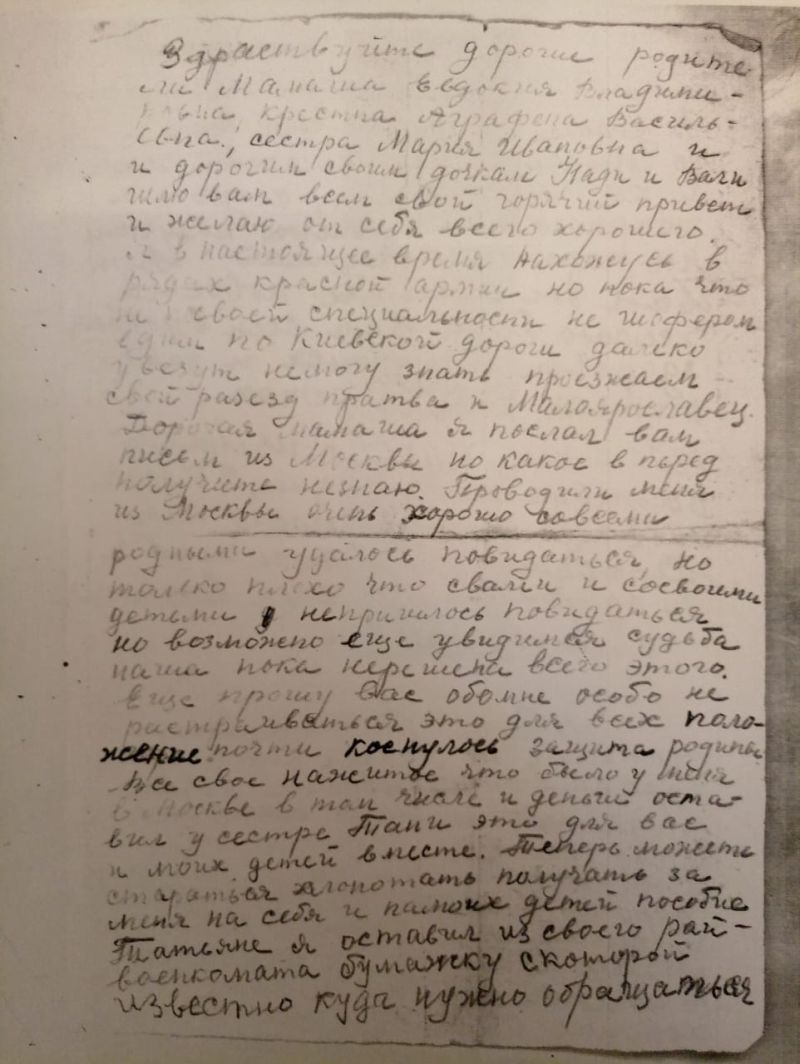 Здраствуйте дорогие родите
ли Мамаша Евдокия Владими-
ровна, крестна Аграфена Василь-
евна, сестра Мария Ивановна и
и дорогим своим дочкам Нади и Вали
шлю вам всем свой горячий привет
и желаю от себя всего хорошего.
я в настоящее время нахожусь в
рядах красной армии но пока что
не своей специальности не шофером
едим по Киевской дороги далеко
увезут немогу знать проезжаем
свой разезд пратва к Малоярославец.
Дорогая мамаша я послал вам
писем из Москвы но какое в перед
получите незнаю. Проводили меня
из Москвы очень хорошо совсеми
родными удалось повидаться, но
только плохо что свами и сосвоими
детьми непришлось повидаться
но возможно еще увидимся судьба
наша пока нерешена всего этого.
Еще прошу вас обомне особо не
растраиваться это для всех поло-
жение почти коснулось защита родины
Все свое нажитое что было у меня
в Москве в том числе и деньги оста-
вил у сестре Тани это для вас
и моих детей вместе. Теперь можете
стараться хлопотать получать за
меня на себя и намоих детей пособие
Татьяне я оставил из своего рай-
военкомата бумажку скоторой
известно куда нужно обращаться